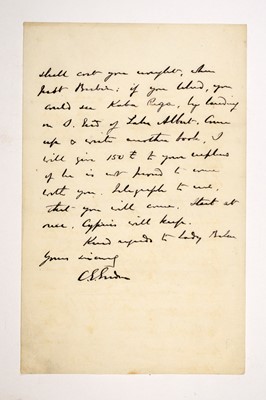 shall cost you nought, then
visit Berber; if you liked, you
could see Kaba Rega, by landing
on S. End of Lake Albert. Come
up & write another book, I
will give 150 £ to your nephew
if he is not proud to come
with you. Telegraph to me,
that you will come, start at
once. Cyprus will keep.
Kind regards to Lady Baker
Yours sincerely
C. G. Gordon